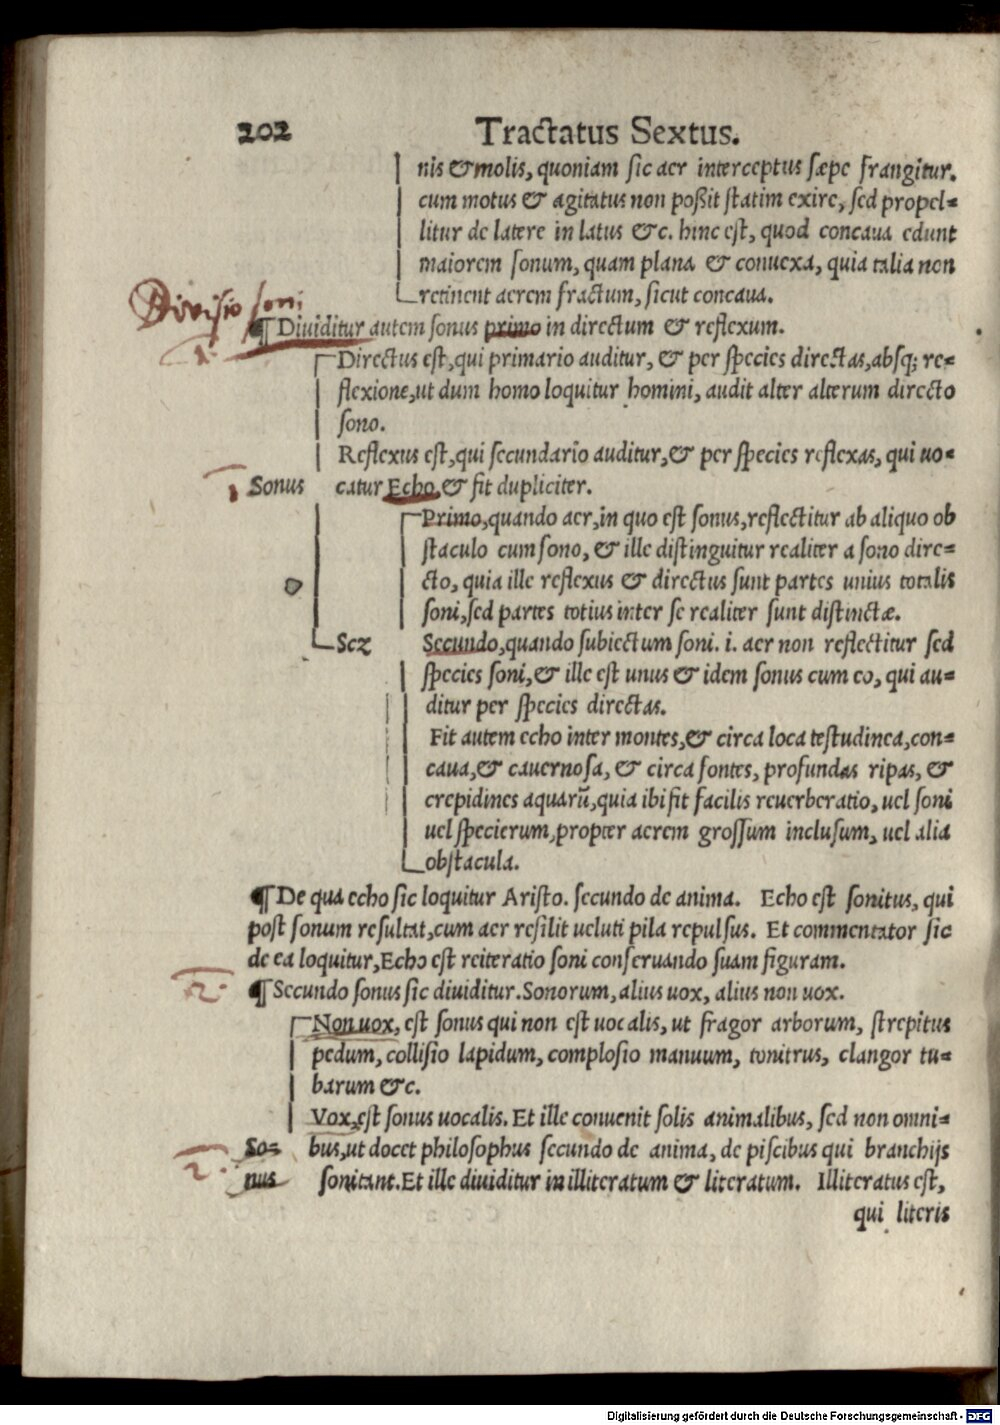 202 Tractatus Sextus.
nis & molis, quoniam sic aer interceptus sæpe frangitur.
cum motus & agitatus non poßit statim exire, sed propel=
litur de latere in latus &c. hinc est, quod concaua edunt
maiorem sonum, quam plana & conuexa, quia talia non
retinent aerem fractum, sicut concaua.
Divisio soni
¶ Diuiditur autem sonus primo in directum & reflexum.
1.
Directus est, qui primario auditur, & per species directas, absq; re=
flexione, ut dum homo loquitur homini, audit alter alterum directo
sono.
Reflexus est, qui secundario auditur, & per species reflexas, qui uo=
1 Sonus catur Echo, & fit dupliciter.
Primo, quando aer, in quo est sonus, reflectitur ab aliquo ob
staculo cum sono, & ille distinguitur realiter a sono dire=
cto, quia ille reflexus & directus sunt partes unius totalis
soni, sed partes totius inter se realiter sunt distinctæ.
Scꝫ Secundo, quando subiectum soni. i. aer non reflectitur sed
species soni, & ille est unus & idem sonus cum eo, qui au=
ditur per species directas.
Fit autem echo inter montes, & circa loca testudinea, con=
caua, & cauernosa, & circa fontes, profundas ripas, &
crepidines aquarū, quia ibi fit facilis reuerberatio, uel soni
uel specierum, propter aerem grossum inclusum, uel alia
obstacula.
¶ De qua echo sic loquitur Aristo. secundo de anima. Echo est sonitus, qui
post sonum resultat, cum aer resilit ueluti pila repulsus. Et commentator sic
de ea loquitur, Echo est reiteratio soni conseruando suam figuram.
2. ¶ Secundo sonus sic diuiditur. Sonorum, alius uox, alius non uox.
Non uox, est sonus qui non est uocalis, ut fragor arborum, strepitus
pedum, collisio lapidum, complosio manuum, tonitrus, clangor tu=
barum &c.
Vox, est sonus uocalis. Et ille conuenit solis animalibus, sed non omni=
2. So= bus, ut docet philosophus secundo de anima, de piscibus qui branchijs
nus sonitant. Et ille diuiditur in illiteratum & literatum. Illiteratus est,
qui literis
Digitalisierung gefördert durch die Deutsche Forschungsgemeinschaft - DFG